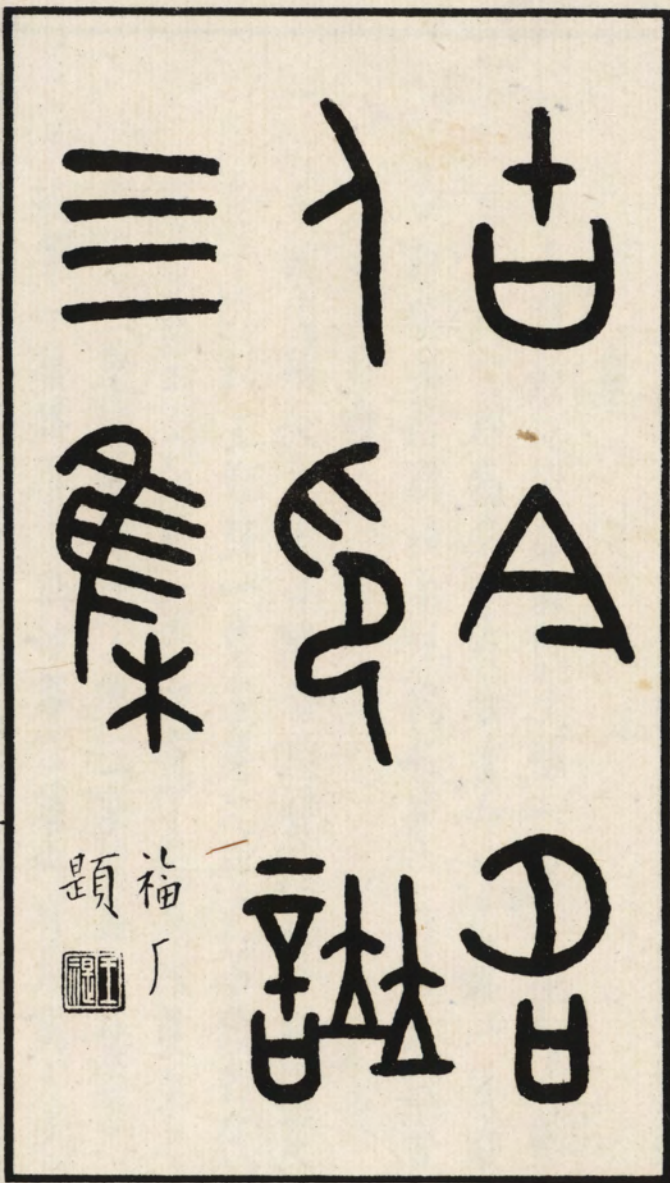 古今名
人印譜
亖集
福厂
題
王禔